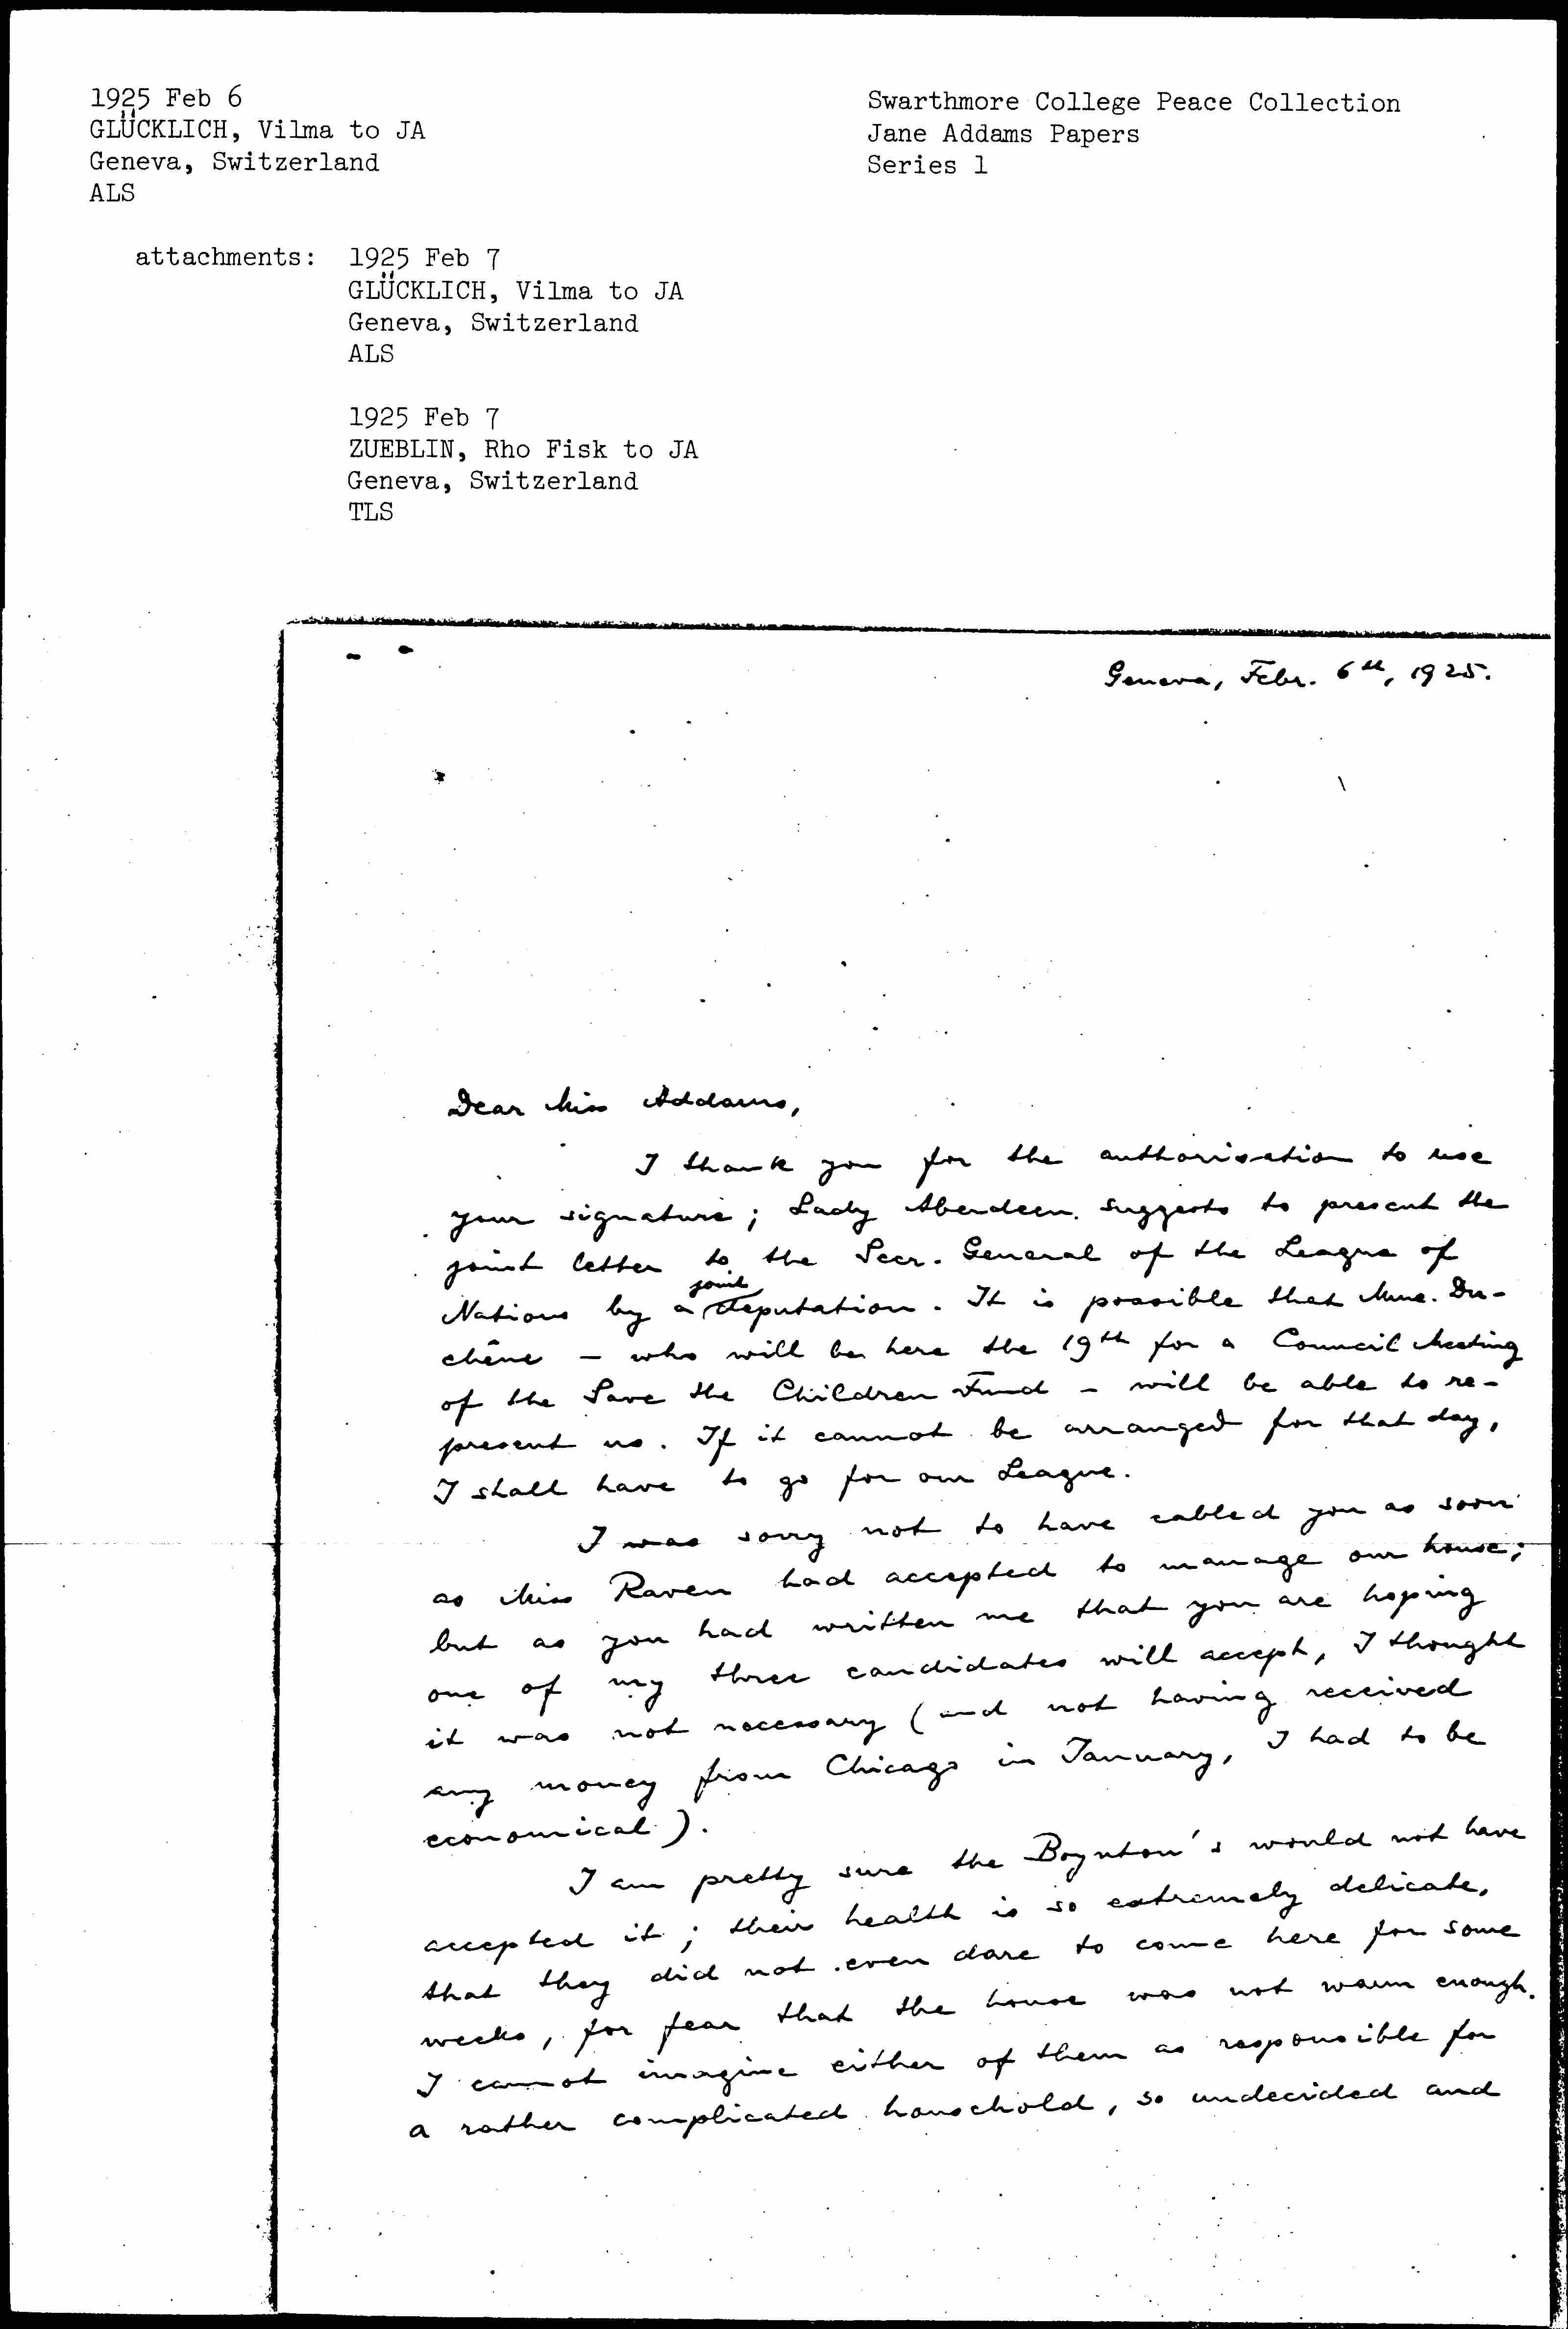 1925 Feb 6
GLÜCKLICH, Vilma to JA
Geneva, Switzerland
ALS
Swarthmore College Peace Collection
Jane Addams Papers
Series 1
attachments: 1925 Feb 7
GLÜCKLICH, Vilma to JA
Geneva, Switzerland
ALS
1925 Feb 7
ZUEBLIN, Rho Fisk to JA
Geneva, Switzerland
TLS
Geneva, Febr. 6th, 1925.
Dear Miss Addams,
I thank you for the authorisation to use
your signature; Lady Aberdeen suggests to present the
joint letter to the Secr. General of the League of
Nations by a joint deputation. It is possible that Mme. Du-
chêne – who will be here the 19th for a Council Meeting
of the Save the Children Fund – will be able to re-
present us. If it cannot be arranged for that day,
I shall have to go for our League.
I was sorry not to have cabled you as soon
as Miss Raven had accepted to manage our house;
but as you had written me that you are hoping
one of my three candidates will accept, I thought
it was not necessary (and not having received
any money from Chicago in January, I had to be
economical).
I am pretty sure the Boynton's would not have
accepted it; their health is so extremely delicate,
that they did not even dare to come here for some
weeks, for fear that the house was not warm enough.
I cannot imagine either of them as responsible for
a rather complicated household, so undecided and